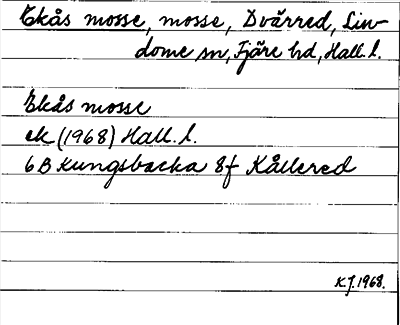 Ekås mosse, mosse, Dvärred, Lin-
dome sn, Fjäre hd, Hall. l.
Ekås mosse
ek (1968) Hall. l.
6B Kungsbacka 8f Kållered
K.J. 1968.